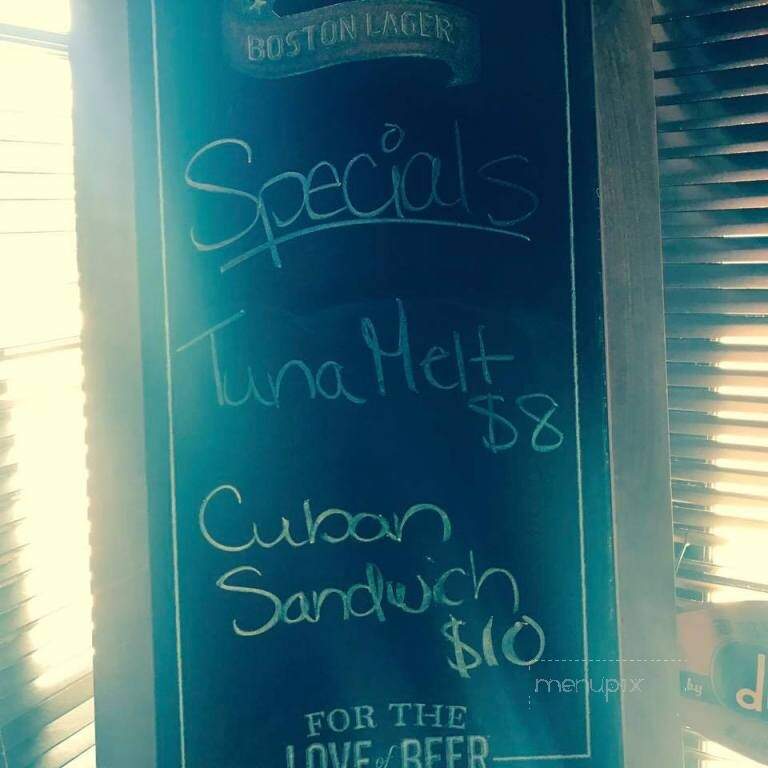 BOSTON LAGER
Specials
Tuna Melt
$8
Cuban
Sandwich
$10
menupix
by
FOR THE
LOVE of BEER